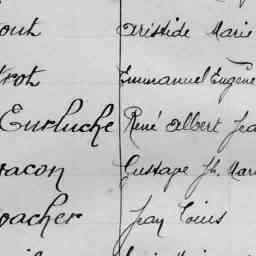 out Aristide Marie
trot Emmanuel Eugène
Eurluche René Albert Jea
acon Gustave Jh. Mari
oacher Jean Louis